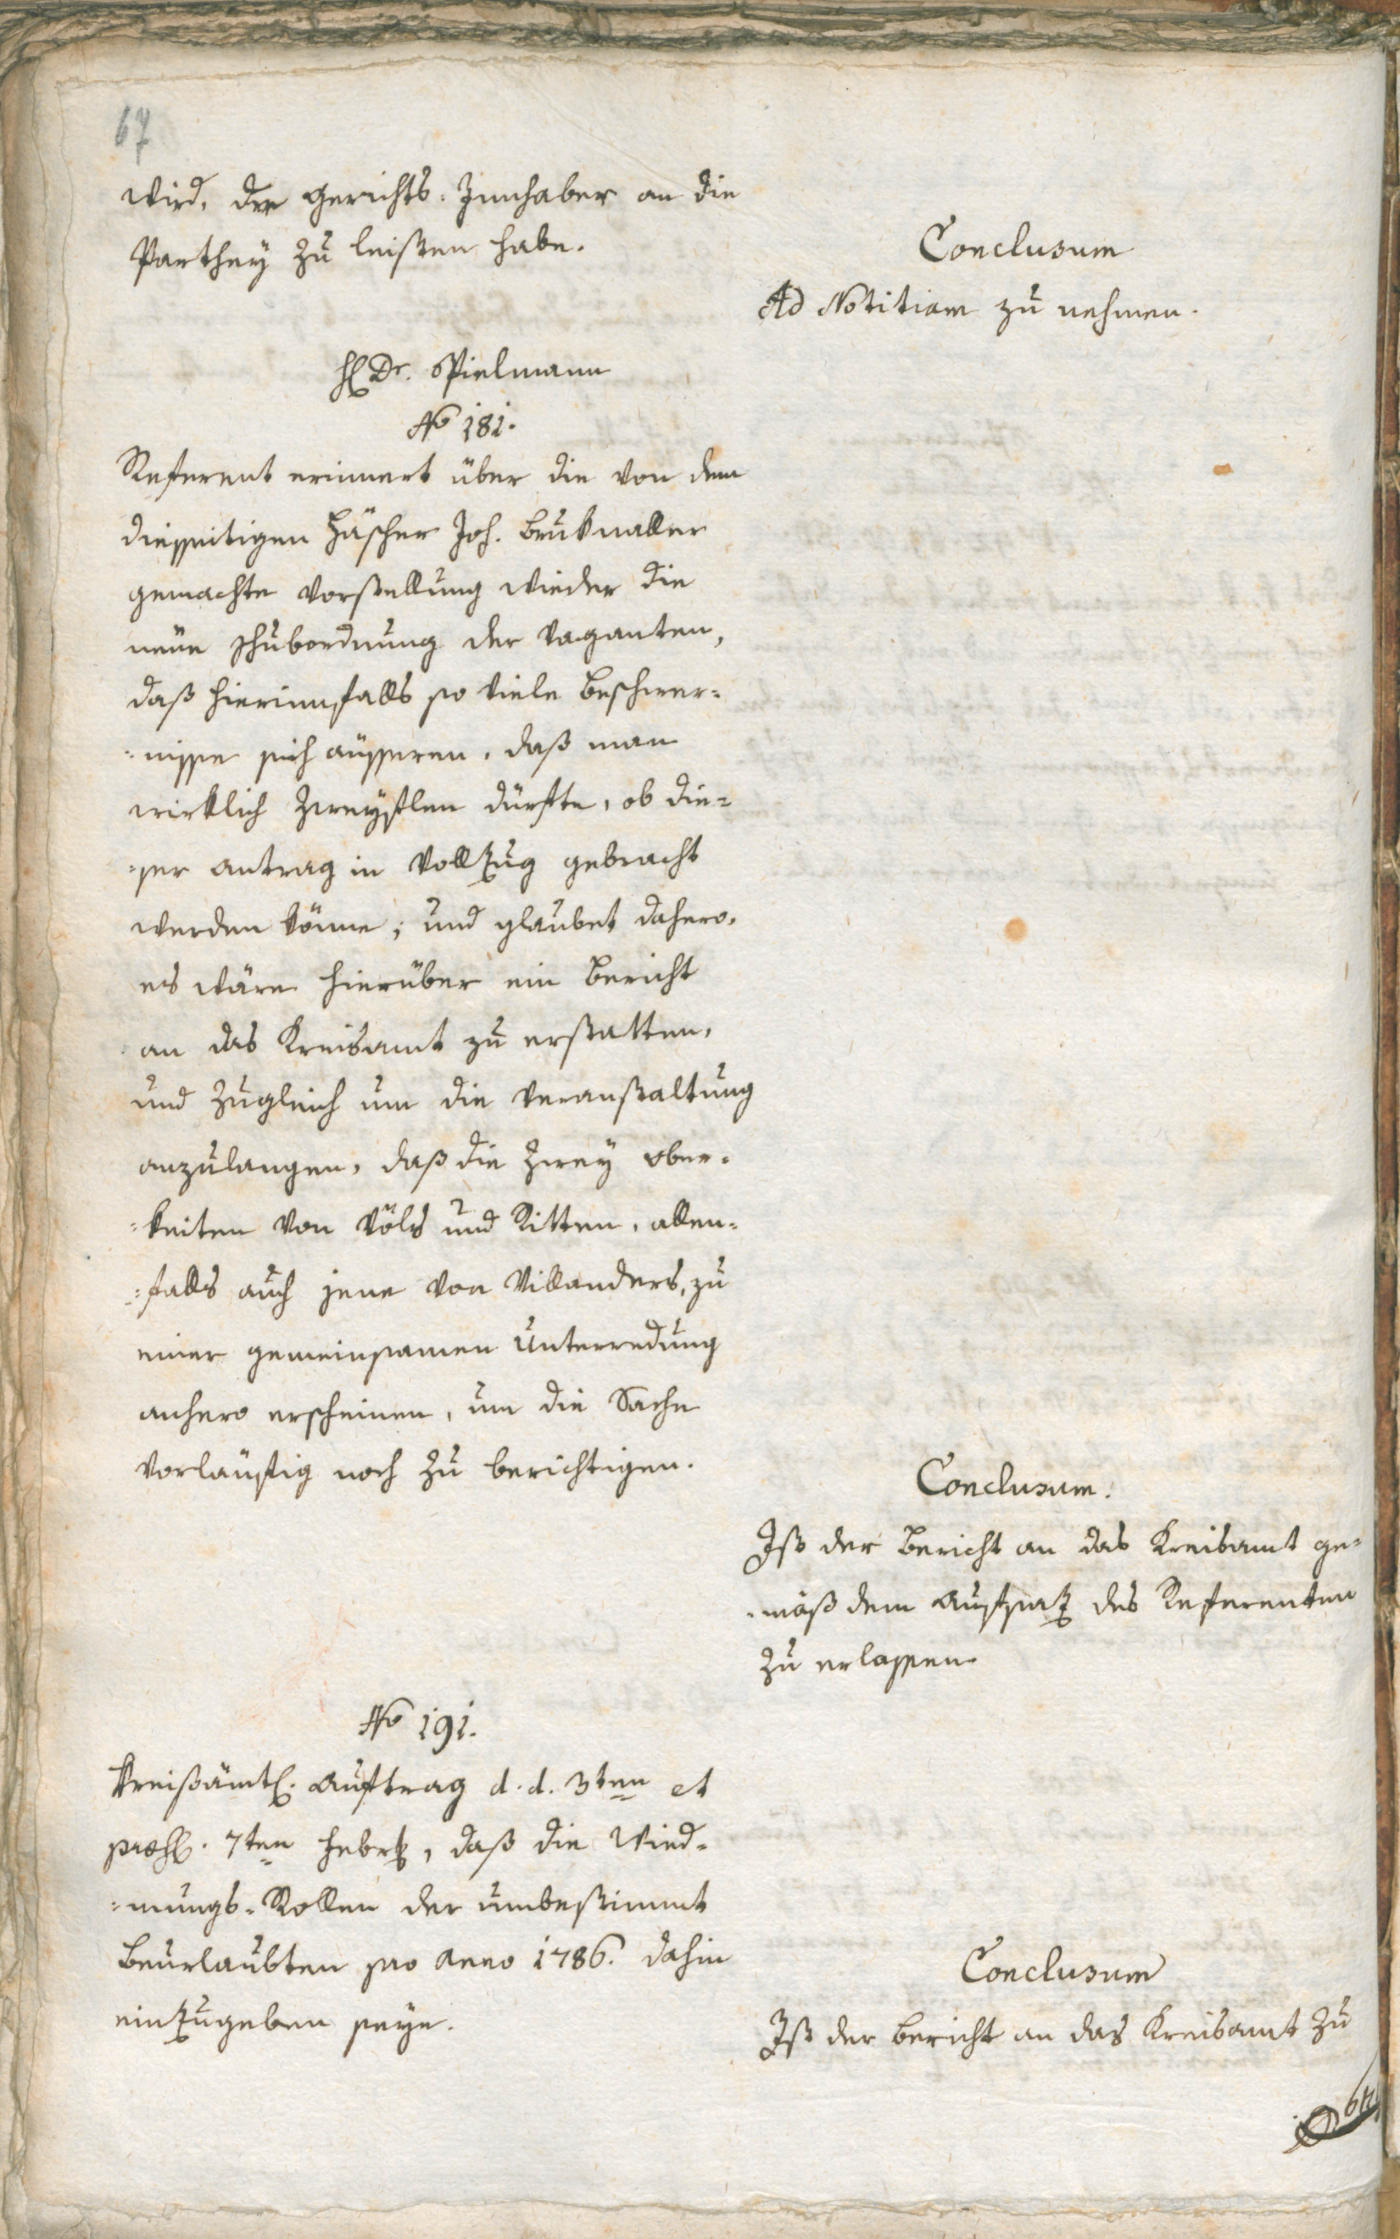 67
wird, der Gerichts-Innhaber an die
Parthey zu leisten habe.
Conclusum
Ad Notitiam zu nehmen.
H. Dr. Spielmann
No 181.
Referent erinnert über die von dem
diesseitigen Häscher Joh. Bruknaller
gemachte Vorstellung wieder die
neüe Schubordnung der Vaganten,
daß hierinnfalls so viele Beschwer-
-nisse sich äusseren, daß man
wirklich zweyflen dürfte, ob die-
-ser Antrag in Vollzug gebracht
werden könne; und glaubet dahero,
es wäre hierüber ein Bericht
an das Kreisamt zu erstatten,
und zugleich um die Veranstaltung
anzulangen, daß die zwey Ober-
-keiten von Völs und Ritten, allen-
-falls auch jene von Villanders, zu
einer gemeinsamen Unterredung
anhero erscheinen, um die Sache
vorläufig noch zu berichtigen.
Conclusum.
Ist der Bericht an das Kreisamt ge-
-mäß dem Aufsatz des Referenten
zu erlassen.
No 191.
Kreisämtl. Auftrag d. d. 3ten et
præs. 7ten Hebr, daß die Wied-
-mungs-Rollen der umbestimmt
Beurlaubten pro Anno 1786. dahin
einzugeben seye.
Conclusum
Ist der Bericht an das Kreisamt zu